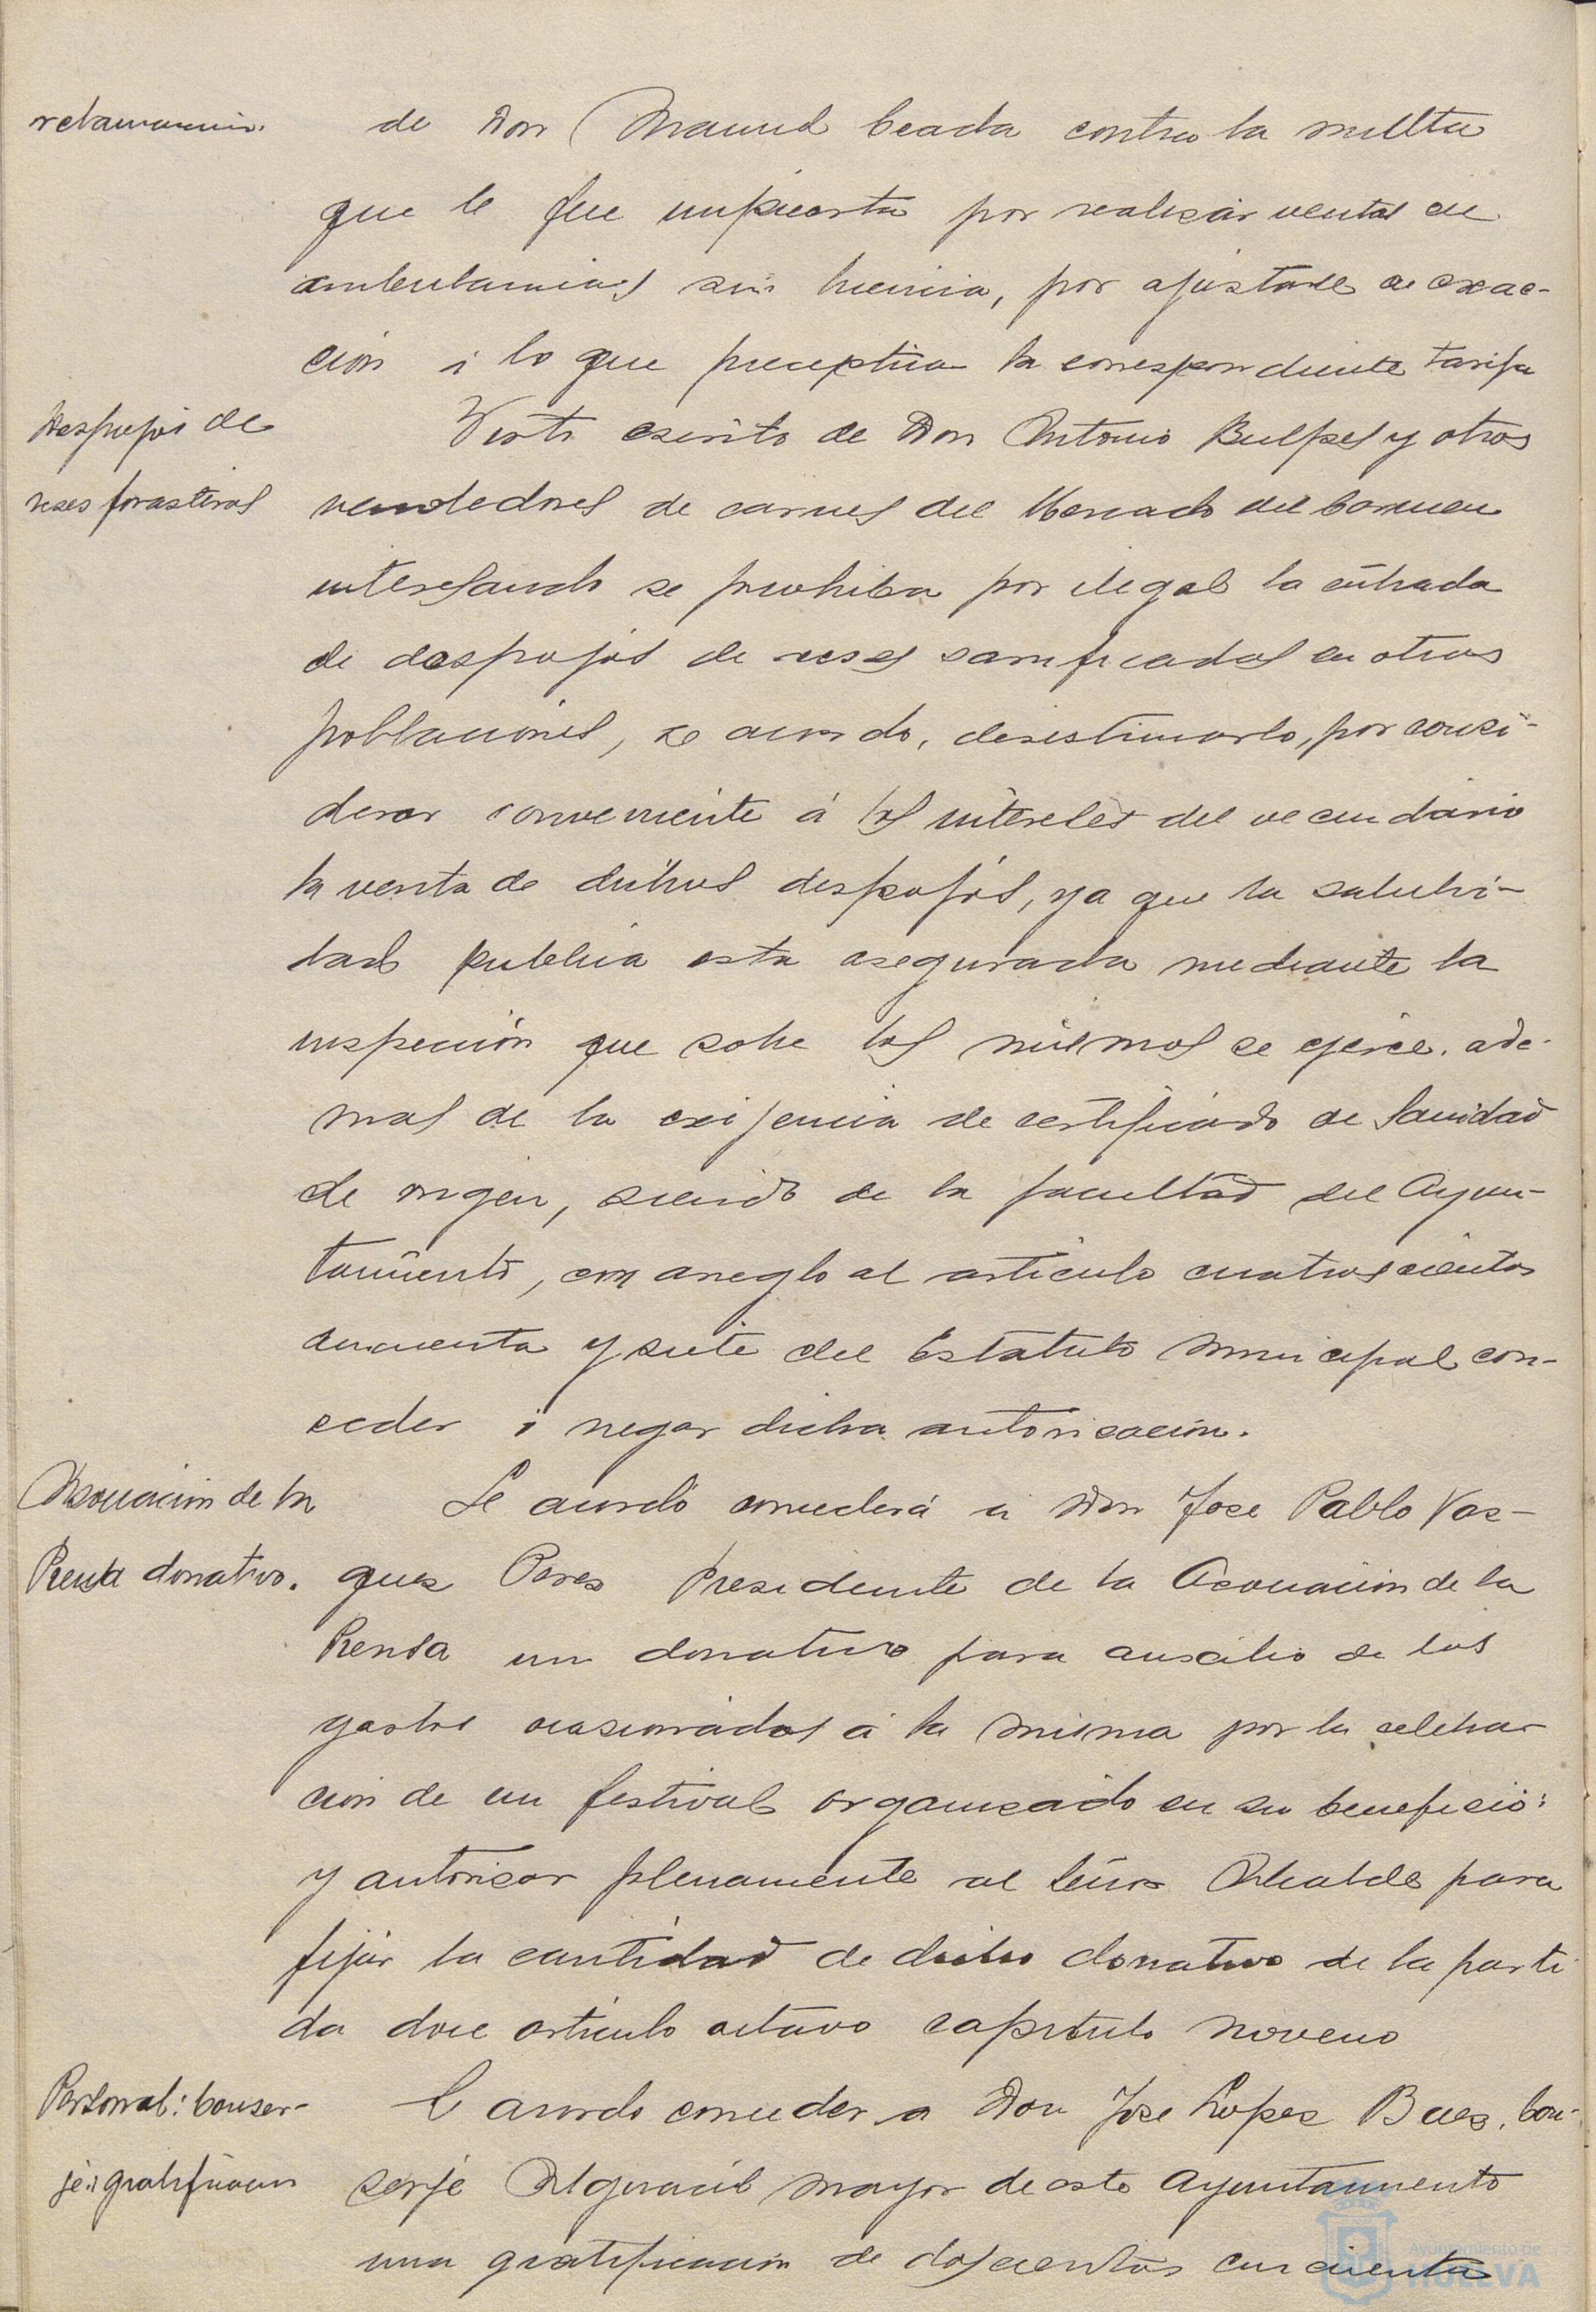 reclamacion.
de Don Manuel Ceada contra la multa
que le fue impuesta por realizar ventas en
ambulancias sin licencia, por ajustarse a exac-
ción á lo que preceptua la correspondiente tarifa
Despojos de
reses forasteras
Visto escrito de Don Antonio Bulpes y otros
vendedores de carnes del Mercado del Carmen
interesando se prohiba por ilegal la entrada
de despojos de reses sacrificadas en otras
poblaciones, se acordo, desestimarlo, por consi-
derar conveniente á los intereses del vecindario
la venta de dichos despojos, ya que la salubri-
dad publica esta asegurada mediante la
inspección que sobre los mismos se ejerce, ade-
mas de la exijencia de certificado de Sanidad
de origen, siendo de la facultad del Ayun-
tamiento, con arreglo al articulo cuatroscientos
cincuenta y siete del Estatuto Municipal con-
ceder ó negar dicha autorización.
Asociación de la
Prensa donativo.
Se acordó concederá a Don Jose Pablo Vaz-
quez Perez Presidente de la Asociación de la
Prensa un donativo para auxilio de los
gastos ocasionados á la misma por la celebra-
ción de un festival organizado en su beneficio:
y autorizar plenamente al Señor Alcalde para
fijar la cantidad de dicho donativo de la parti
da doce articulo octavo capitulo noveno
Personal: Conser-
je: gratificacion
Se acordo conceder a Don Jose Lopez Baez, Con-
serje Alguacil mayor de este Ayuntamiento
una gratificacion de doscientas cincuenta
Ayuntamiento de
HUELVA